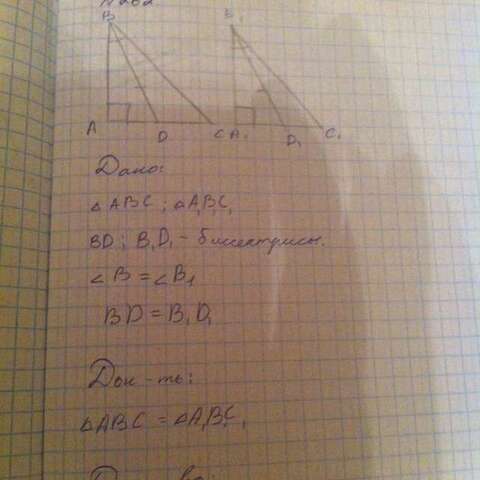 № 262
B B₁
A D C A₁ D₁ C₁
Дано:
△ABC; △A₁B₁C₁
BD; B₁D₁ - биссектрисы.
∠B = ∠B₁
BD = B₁D₁
Док-ть:
△ABC = △A₁B₁C₁